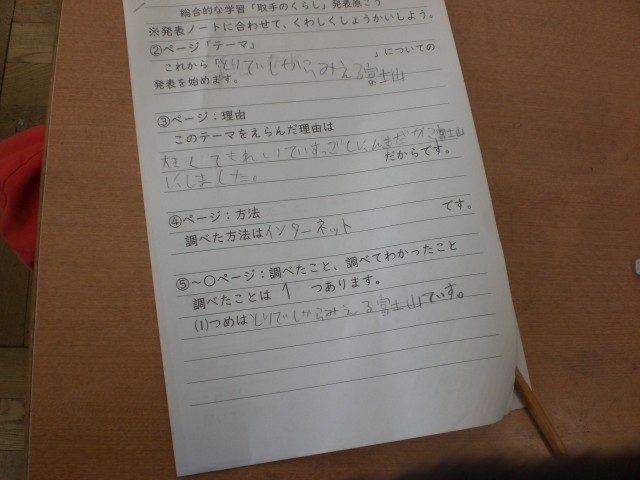 総合的な学習「取手のくらし」発表原こう
※発表ノートに合わせて、くわしくしょうかいしよう。
②ページ「テーマ」
これから「とりでしからみえる富士山」についての
発表を始めます。
③ページ：理由
このテーマをえらんだ理由は
富士山
だからです。
くしました。
④ページ：方法
調べた方法はインターネット です。
⑤〜○ページ：調べたこと、調べてわかったこと
調べたことは 1 つあります。
(1)つめはとりでしからみえる富士山です。